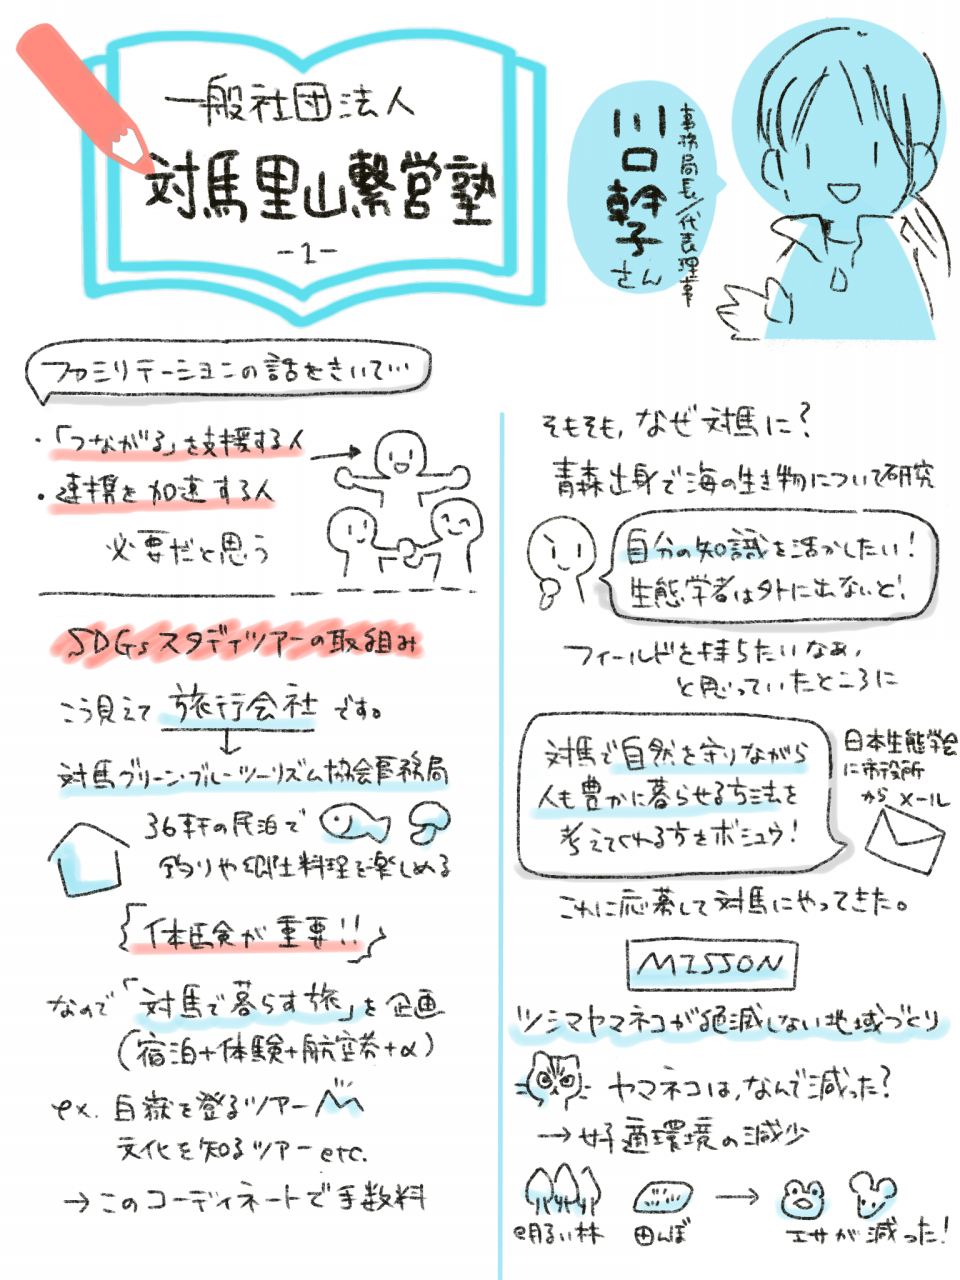 一般社団法人
対馬里山繋営塾
-1-
事務局長/代表理事
川口幹子さん
ファミリテーションの話をきいて…
・「つながる」を支援する人
・連携を加速する人
必要だと思う
SDGsスタディツアーの取組み
こう見えて 旅行会社 です。
対馬グリーン・ブルーツーリズム協会事務局
36軒の民泊で
釣りや郷土料理を楽しめる
体験が重要!!
なので「対馬で暮らす旅」を企画
(宿泊+体験+航空券+α)
ex. 白嶽を登るツアー
文化を知るツアー etc.
→このコーディネートで手数料
そもそも,なぜ対馬に?
青森出身で海の生き物について研究
自分の知識を活かしたい!
生態学者は外に出ないと!
フィールドを持ちたいなぁ,
と思っていたところに
対馬で自然を守りながら
人も豊かに暮らせる方法を
考えてくれる方をボシュウ!
日本生態学会
に市役所
から メール
これに応募して対馬にやってきた。
MISSON
ツシマヤマネコが絶滅しない地域づくり
ヤマネコは,なんで減った?
→好適環境の減少
明るい林
田んぼ
→
エサが減った!